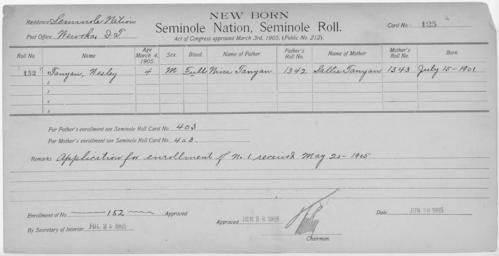 NEW BORN
Residence Seminole Nation
Seminole Nation, Seminole Roll.
Card No. 125
Post Office Wewoka I T
Act of Congress approved March 3rd, 1905. (Public No. 212).
Roll No. Name Age March 4, 1905. Sex. Blood. Name of Father. Father's Roll No. Name of Mother. Mother's Roll No. Born.
152 Tanyan, Wesley 4 M Full Tanyan 1342 Sallie Tanyan 1343 July 15 - 1901
For Father's enrollment see Seminole Roll Card No. 403
For Mother's enrollment see Seminole Roll Card No. 403
Remarks Application for enrollment of No. 1 received May 20 - 1905
Enrollment of No. 152 Approved
By Secretary of Interior
Approved
Chairman.
Date: